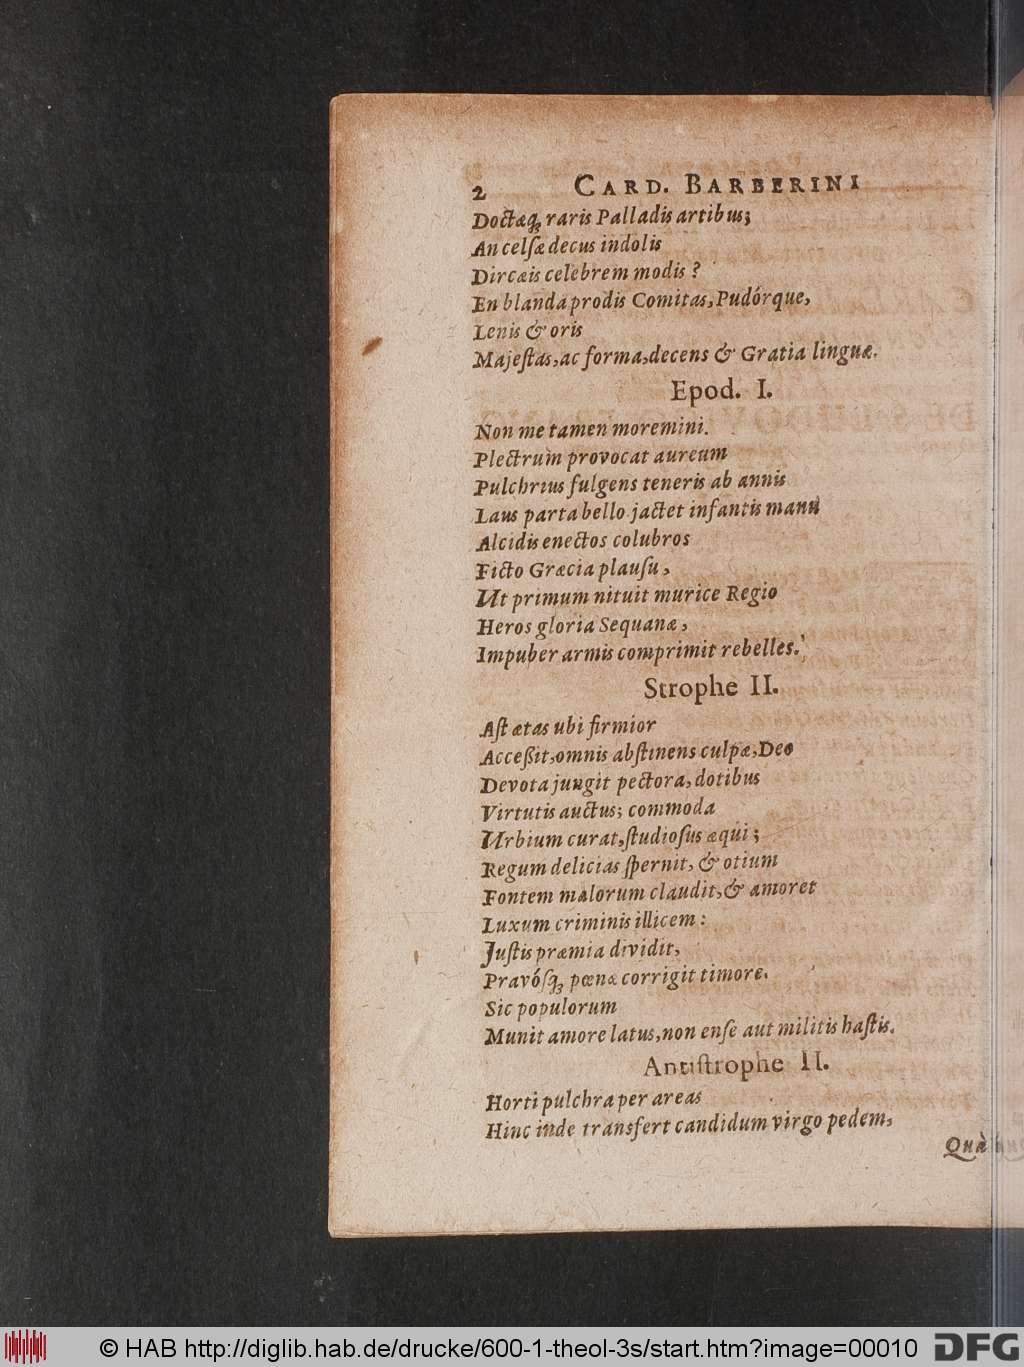 2 CARD. BARBERINI
Doctæq́; raris Palladis artibus;
An celſæ decus indolis
Dircæis celebrem modis?
En blanda prodis Comitas, Pudórque,
Lenis & oris
Majeſtas, ac forma, decens & Gratia linguæ.
Epod. I.
Non me tamen moremini.
Plectrum provocat aureum
Pulchrius fulgens teneris ab annis
Laus parta bello jactet infantis manu
Alcidis enectos colubros
Ficto Græcia plauſu,
Ut primum nituit murice Regio
Heros gloria Sequanæ,
Impuber armis comprimit rebelles.
Strophe II.
Aſt ætas ubi firmior
Acceßit, omnis abſtinens culpæ, Deo
Devota jungit pectora, dotibus
Virtutis auctus; commoda
Urbium curat, ſtudioſus æqui;
Regum delicias ſpernit, & otium
Fontem malorum claudit, & amoret
Luxum criminis illicem:
Juſtis præmia dividit,
Pravóſq; pœnæ corrigit timore.
Sic populorum
Munit amore latus, non enſe aut militis haſtis.
Antiſtrophe II.
Horti pulchra per areas
Hinc inde transfert candidum virgo pedem,
Quà
© HAB http://diglib.hab.de/drucke/600-1-theol-3s/start.htm?image=00010 DFG